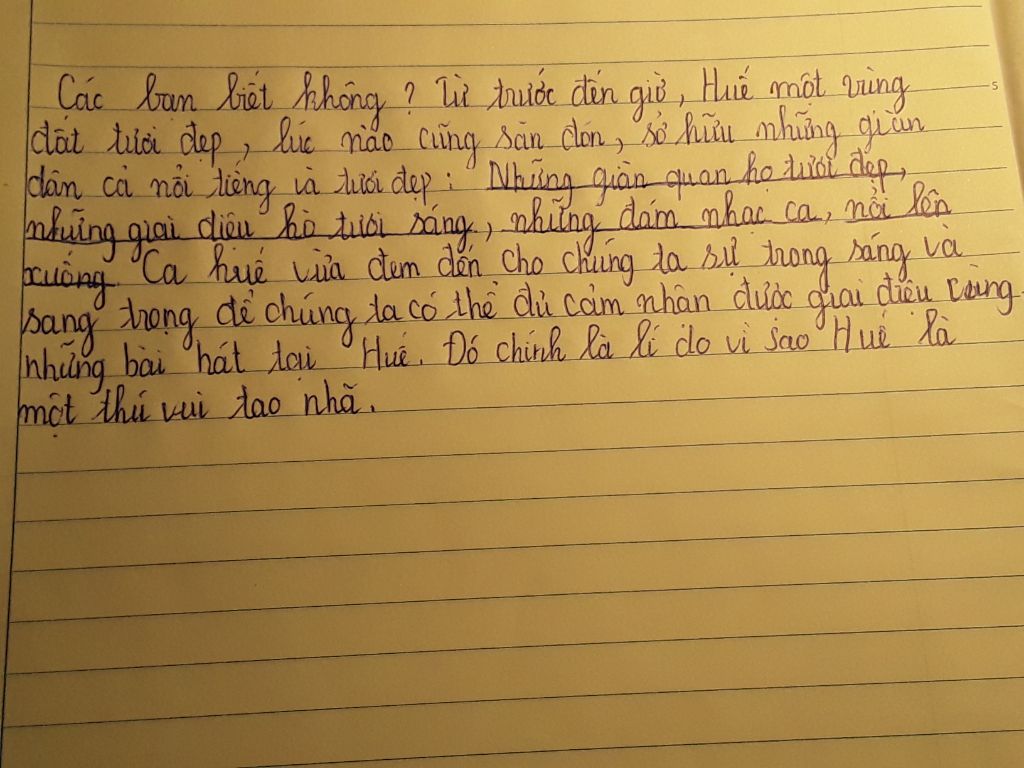 Các bạn biết không? Từ trước đến giờ, Huế một vùng
đất tươi đẹp, lúc nào cũng săn đón, sở hữu những giàn
dân ca nổi tiếng và tươi đẹp: Những giàn quan họ tươi đẹp,
những giai điệu hò tươi sáng, những đám nhạc ca, nổi lên
xuống Ca huế vừa đem đến cho chúng ta sự trong sáng và
sang trọng để chúng ta có thể đủ cảm nhận được giai điệu cùng
những bài hát tại Huế. Đó chính là lí do vì sao Huế là
một thú vui tao nhã.
5